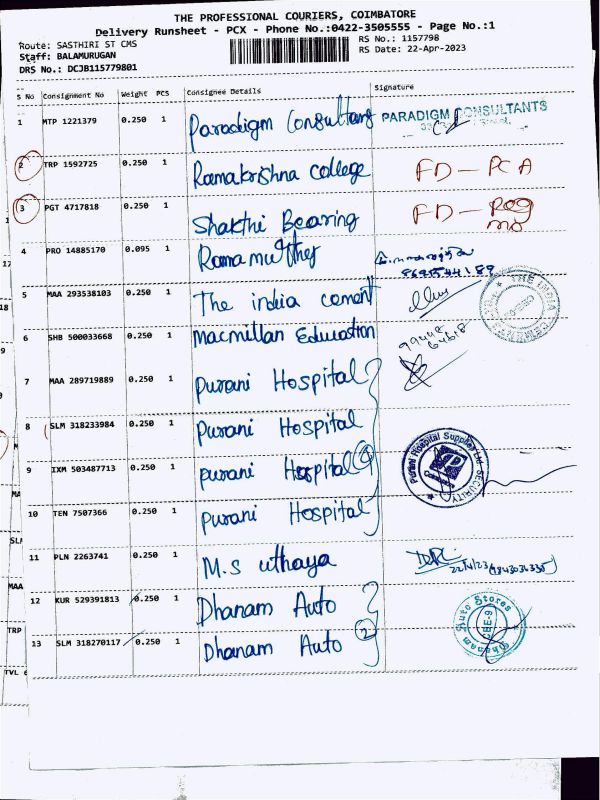 THE PROFESSIONAL COURIERS, COIMBATORE
Delivery Runsheet - PCX - Phone No.:0422-3505555 - Page No.:1
Route: SASTHIRI ST CMS RS No.: 1157798
Staff: BALAMURUGAN RS Date: 22-Apr-2023
DRS No.: DCJB115779801
S No Consignment No Weight PCS Consignee Details Signature
1 MTP 1221379 0.250 1 Paradigm Consultant PARADIGM CONSULTANTS
2 TRP 1592725 0.250 1 Ramakrishna College FD - PCA
3 PGT 4717818 0.250 1 Shakthi Bearing FD - Reg
no
4 PRO 14885170 0.095 1 Ramamutthy
8695441189
5 MAA 293538103 0.250 1 The india cement THE INDIA CEMENTS
6 SHB 500033668 0.250 1 Macmillan Education 99442
64618
7 MAA 289719889 0.250 1 Purani Hospital
8 SLM 318233984 0.250 1 Purani Hospital
9 IXM 503487713 0.250 1 Purani Hospital 4 Purani Hospital Supplies Ltd SECURITY
10 TEN 7507366 0.250 1 Purani Hospital
11 PLN 2263741 0.250 1 M.S uthaya
22/4/23
12 KUR 529391813 0.250 1 Dhanam Auto
13 SLM 318270117 0.250 1 Dhanam Auto 2 Dhanam Auto Stores CBE-9
17
18
9
MA
SLM
MAA
TRP
TVL 6